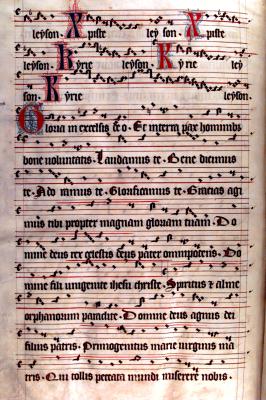 leyson. Xpiste ley son. Xpiste
leyson. Kyrie leyson. Kyrie ley
son. Kyrie leyson.
Gloria in excelsis deo. Et in terra pax hominibus
bone voluntatis. Laudamus te. Bene dicimus
te. Ado ramus te. Glorificamus te. Gracias agi
mus tibi propter magnam gloriam tuam. Do
mine deus rex celestis deus pater omnipotens. Do
mine fili unigenite ihesu christe. Spiritus z alme
orphanorum paraclite. Domine deus agnus dei
filius patris. Primogenitus marie virginis ma
tris. Qui tollis peccata mundi miserere nobis.